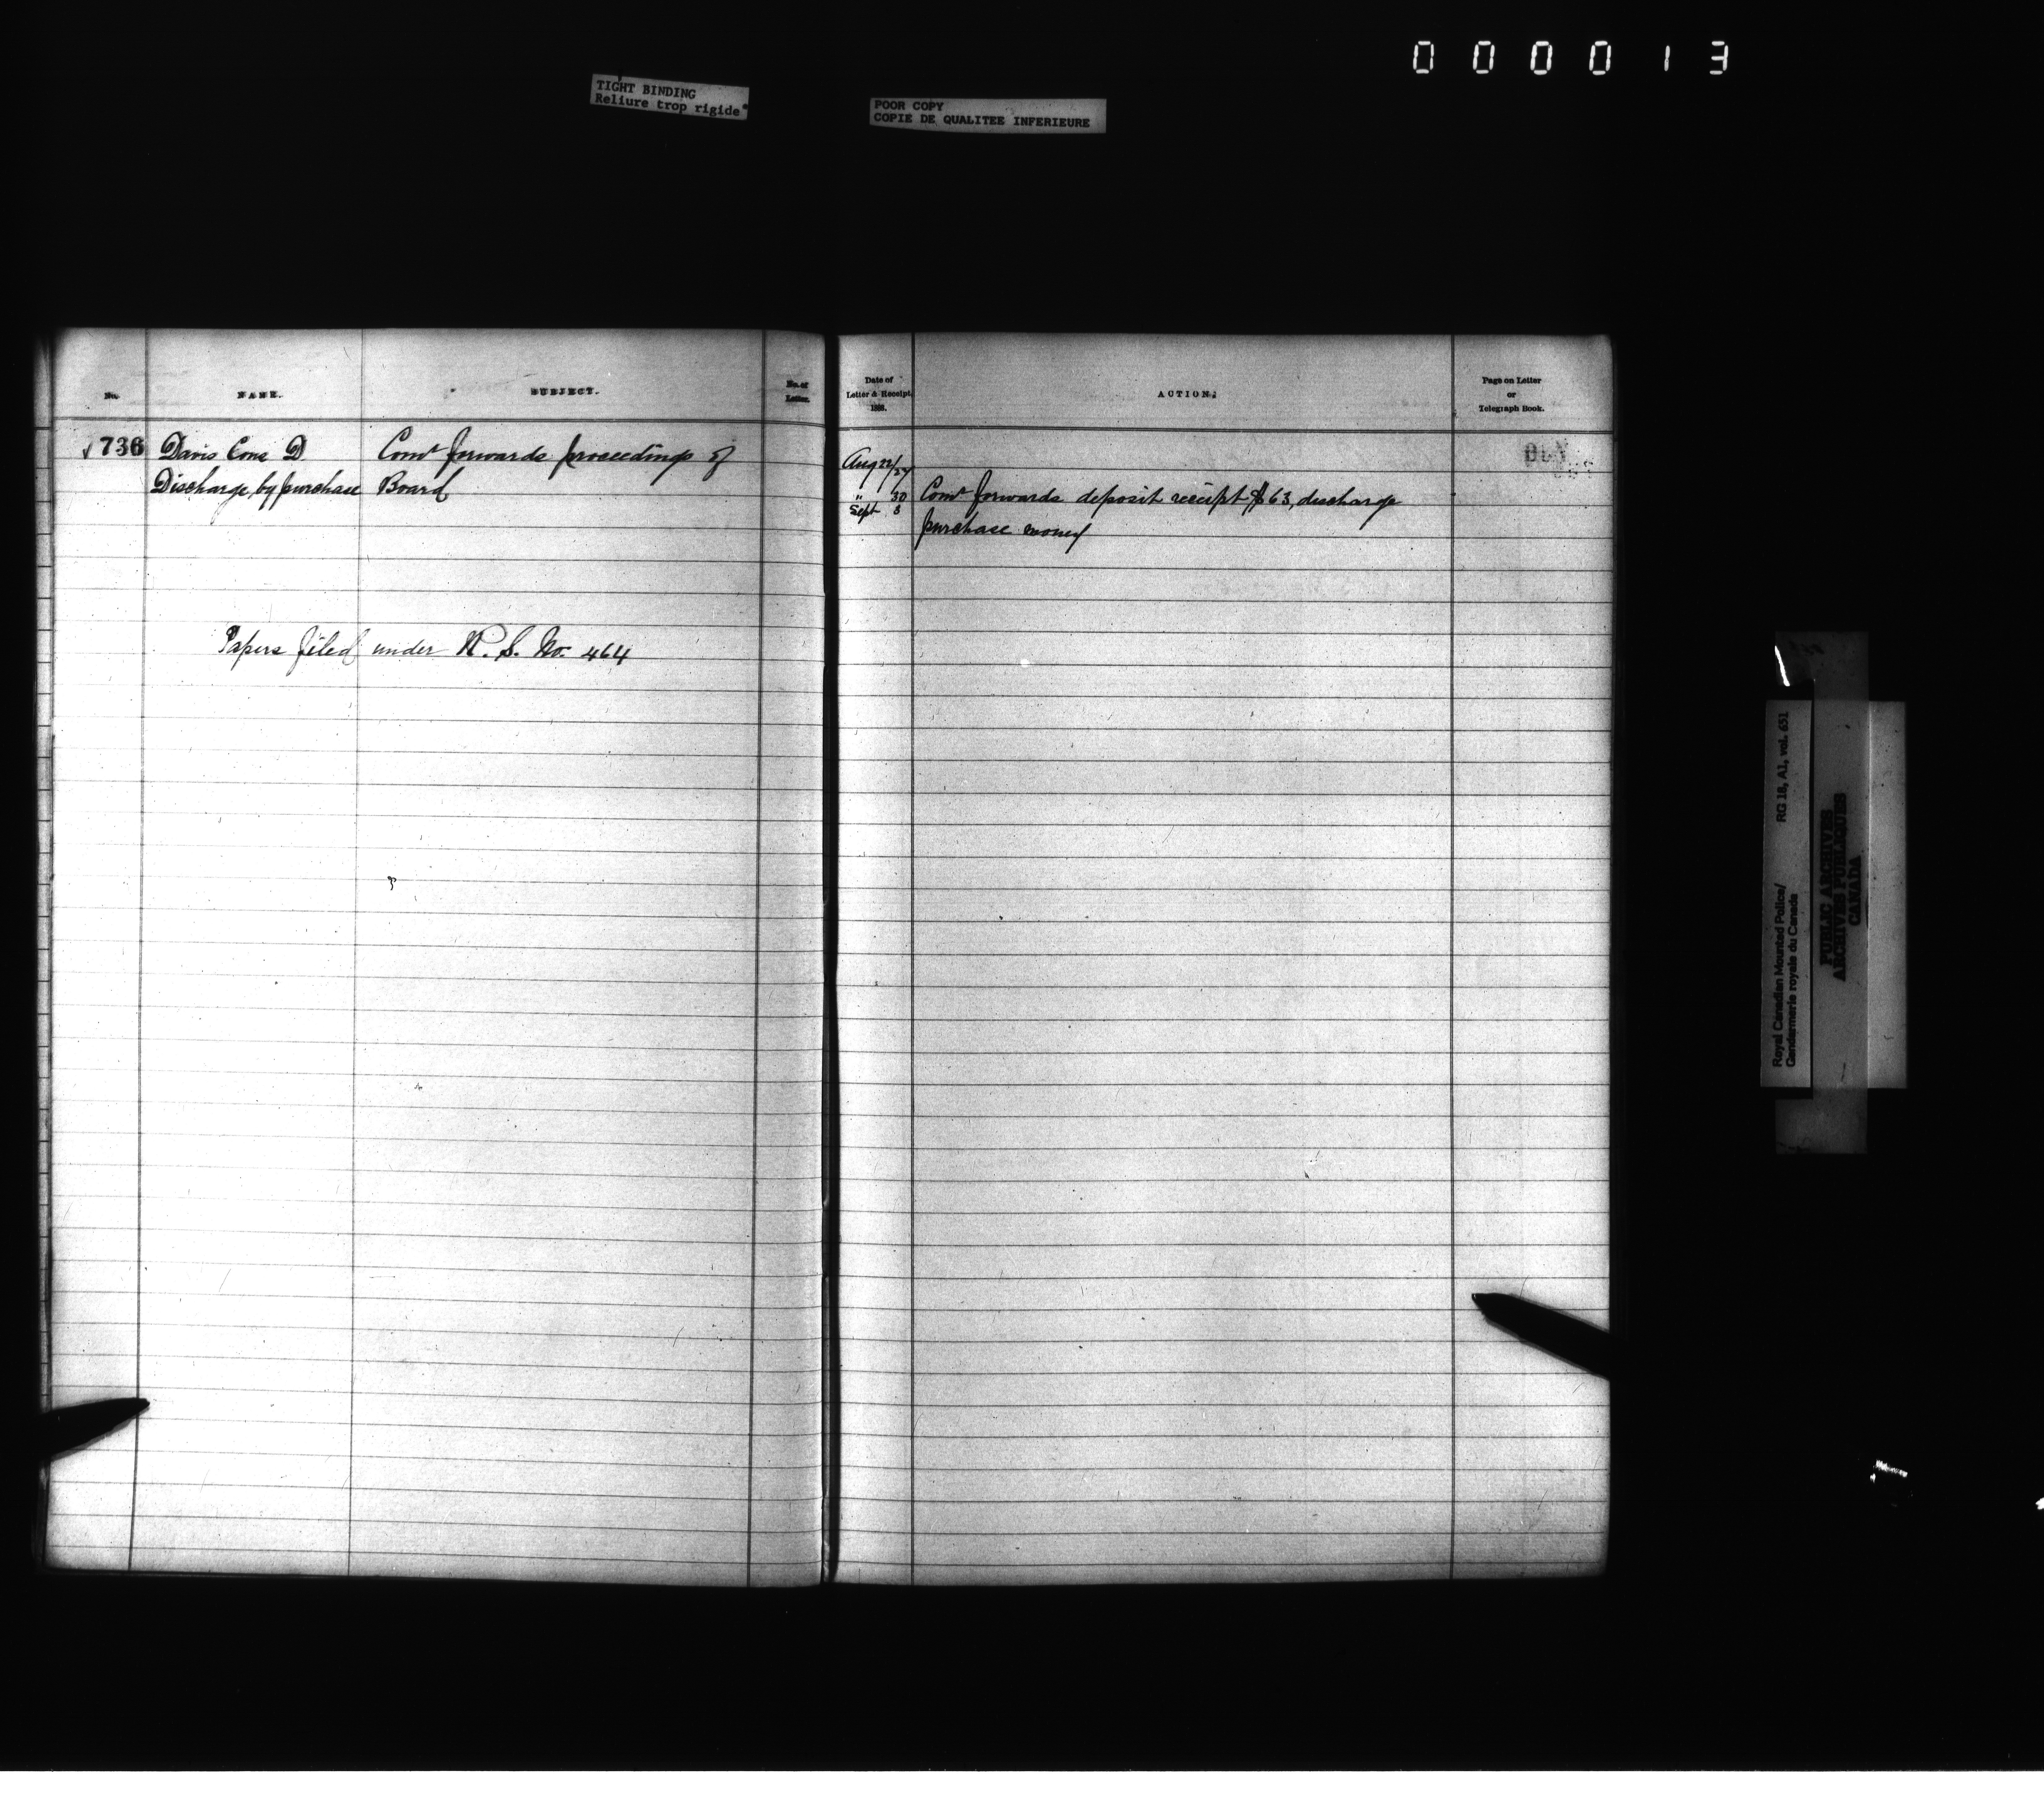 000013
TIGHT BINDING
Reliure trop rigide
POOR COPY
COPIE DE QUALITEE INFERIEURE
No.
NAME.
SUBJECT.
No. of
Letter.
√ 736
Davis Cons D
Discharge by purchase
Comr forwards proceedings of
Board
Papers filed under R. S. No. 464
Date of
Letter & Receipt.
1888.
ACTION.
Page on Letter
or
Telegraph Book.
Aug 22/27
" 30
Sept 3
Comr forwards deposit receipt $63, discharge
purchase money
Royal Canadian Mounted Police/
Gendarmerie royale du Canada
RG 18, A1, vol. 651
PUBLIC ARCHIVES
ARCHIVES PUBLIQUES
CANADA